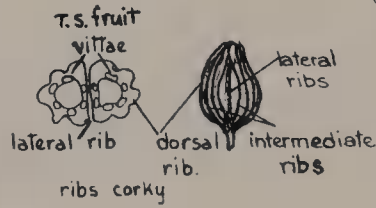 T.S. fruit
vittae
lateral
ribs
lateral rib
dorsal
rib.
intermediate
ribs
ribs corky